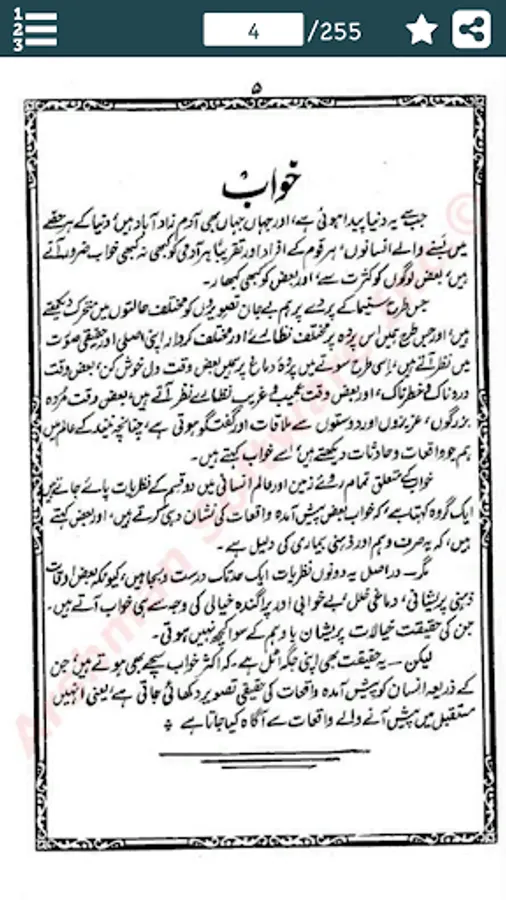 1
2
3
4
/255
۵
خواب
جب سے یہ دنیا پیدا ہوئی ہے، اور جہاں جہاں بھی آدم زاد آباد ہیں، دنیا کے ہر حصے
میں بسنے والے انسانوں، ہر قوم کے افراد اور تقریباً ہر آدمی کو کبھی نہ کبھی خواب ضرور آتے
ہیں، بعض لوگوں کو کثرت سے، اور بعض کو کبھی کبھار۔
جس طرح سنیما کے پردے پر ہم بے جان تصویروں کو مختلف حالتوں میں متحرک دیکھتے
ہیں، اور جس طرح ہمیں اس پردہ پر مختلف نظارے اور مختلف کردار اپنی اصلی اور حقیقی صورت
میں نظر آتے ہیں، اسی طرح سوتے میں پردۂ دماغ پر ہمیں بعض وقت دل خوش کن، بعض وقت
دردناک و خطرناک، اور بعض وقت عجیب و غریب نظارے نظر آتے ہیں، بعض وقت مُردہ
بزرگوں، عزیزوں اور دوستوں سے ملاقات اور گفتگو ہوتی ہے، چنانچہ نیند کے عالم میں
ہم جو واقعات و حادثات دیکھتے ہیں، اسے خواب کہتے ہیں۔
خواب کے متعلق تمام روئے زمین اور عالم انسانی میں دو قسم کے نظریات پائے جاتے ہیں
ایک گروہ کہتا ہے، کہ خواب بعض پیش آمدہ واقعات کی نشان دہی کرتے ہیں، اور بعض کہتے
ہیں، کہ یہ صرف وہم اور ذہنی بیماری کی دلیل ہے۔
مگر — دراصل یہ دونوں نظریات ایک حد تک درست و بجا ہیں، کیونکہ بعض اوقات
ذہنی پریشانی، دماغی خلل، بے خوابی اور پراگندہ خیالی کی وجہ سے ہی خواب آتے ہیں۔
جن کی حقیقت خیالات پریشان یا وہم کے سوا کچھ نہیں ہوتی۔
لیکن — یہ حقیقت بھی اپنی جگہ اٹل ہے۔ کہ اکثر خواب سچے بھی ہوتے ہیں، جن
کے ذریعہ انسان کو پیش آمدہ واقعات کی حقیقی تصویر دکھائی جاتی ہے، یعنی انہیں
مستقبل میں پیش آنے والے واقعات سے آگاہ کیا جاتا ہے